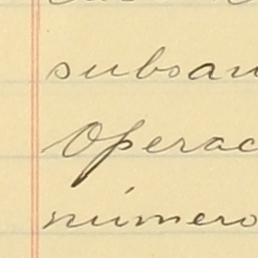 subsan
Operac
número